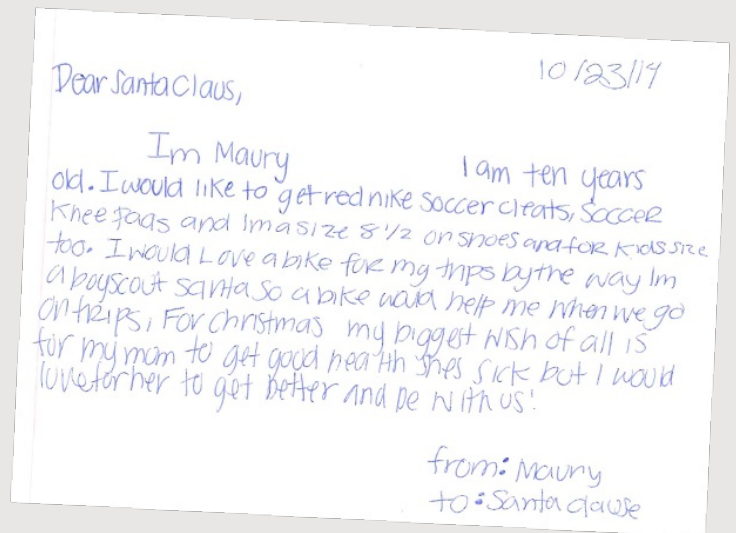 10/23/19
Dear Santa Claus,
Im Maury I am ten years
old. I would like to get red nike soccer cleats, Soccer
Knee pads and Im a size 8 1/2 on shoes and for kids size
too. I would Love a bike for my trips by the way Im
a boyscout santa so a bike would help me when we go
on trips, For Christmas my biggest wish of all is
for my mom to get good health shes sick but I would
love for her to get better and be with us!
from: Maury
to: Santa clause